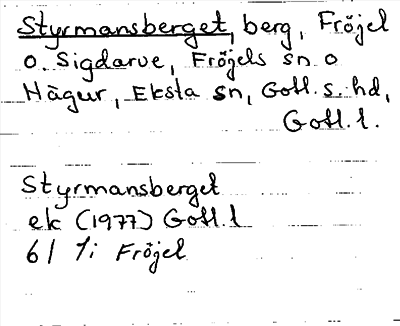 Styrmansberget, berg, Fröjel
o. Sigdarve, Fröjels sn o
Hägur, Eksta sn, Gotl. s. hd,
Gotl. l.
Styrmansberget
ek (1977) Gotl. l
6I 7i Fröjel